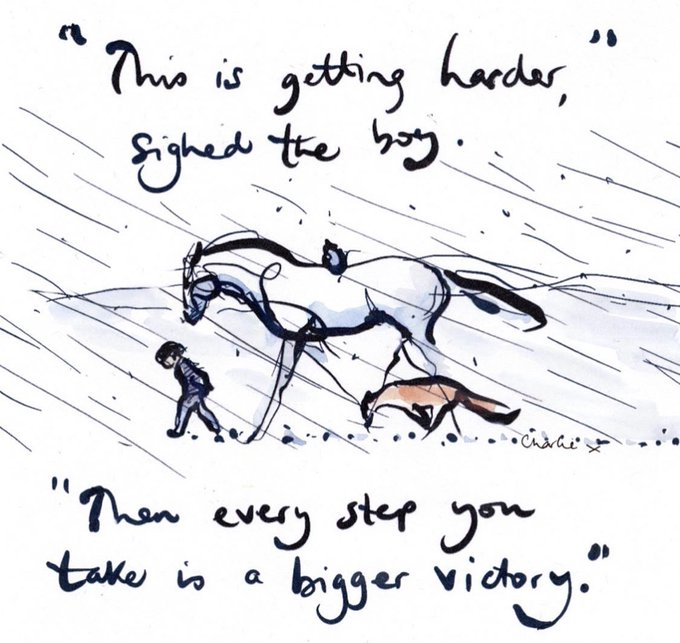 "This is getting harder,"
sighed the boy.
Charlie x
"Then every step you
take is a bigger victory."